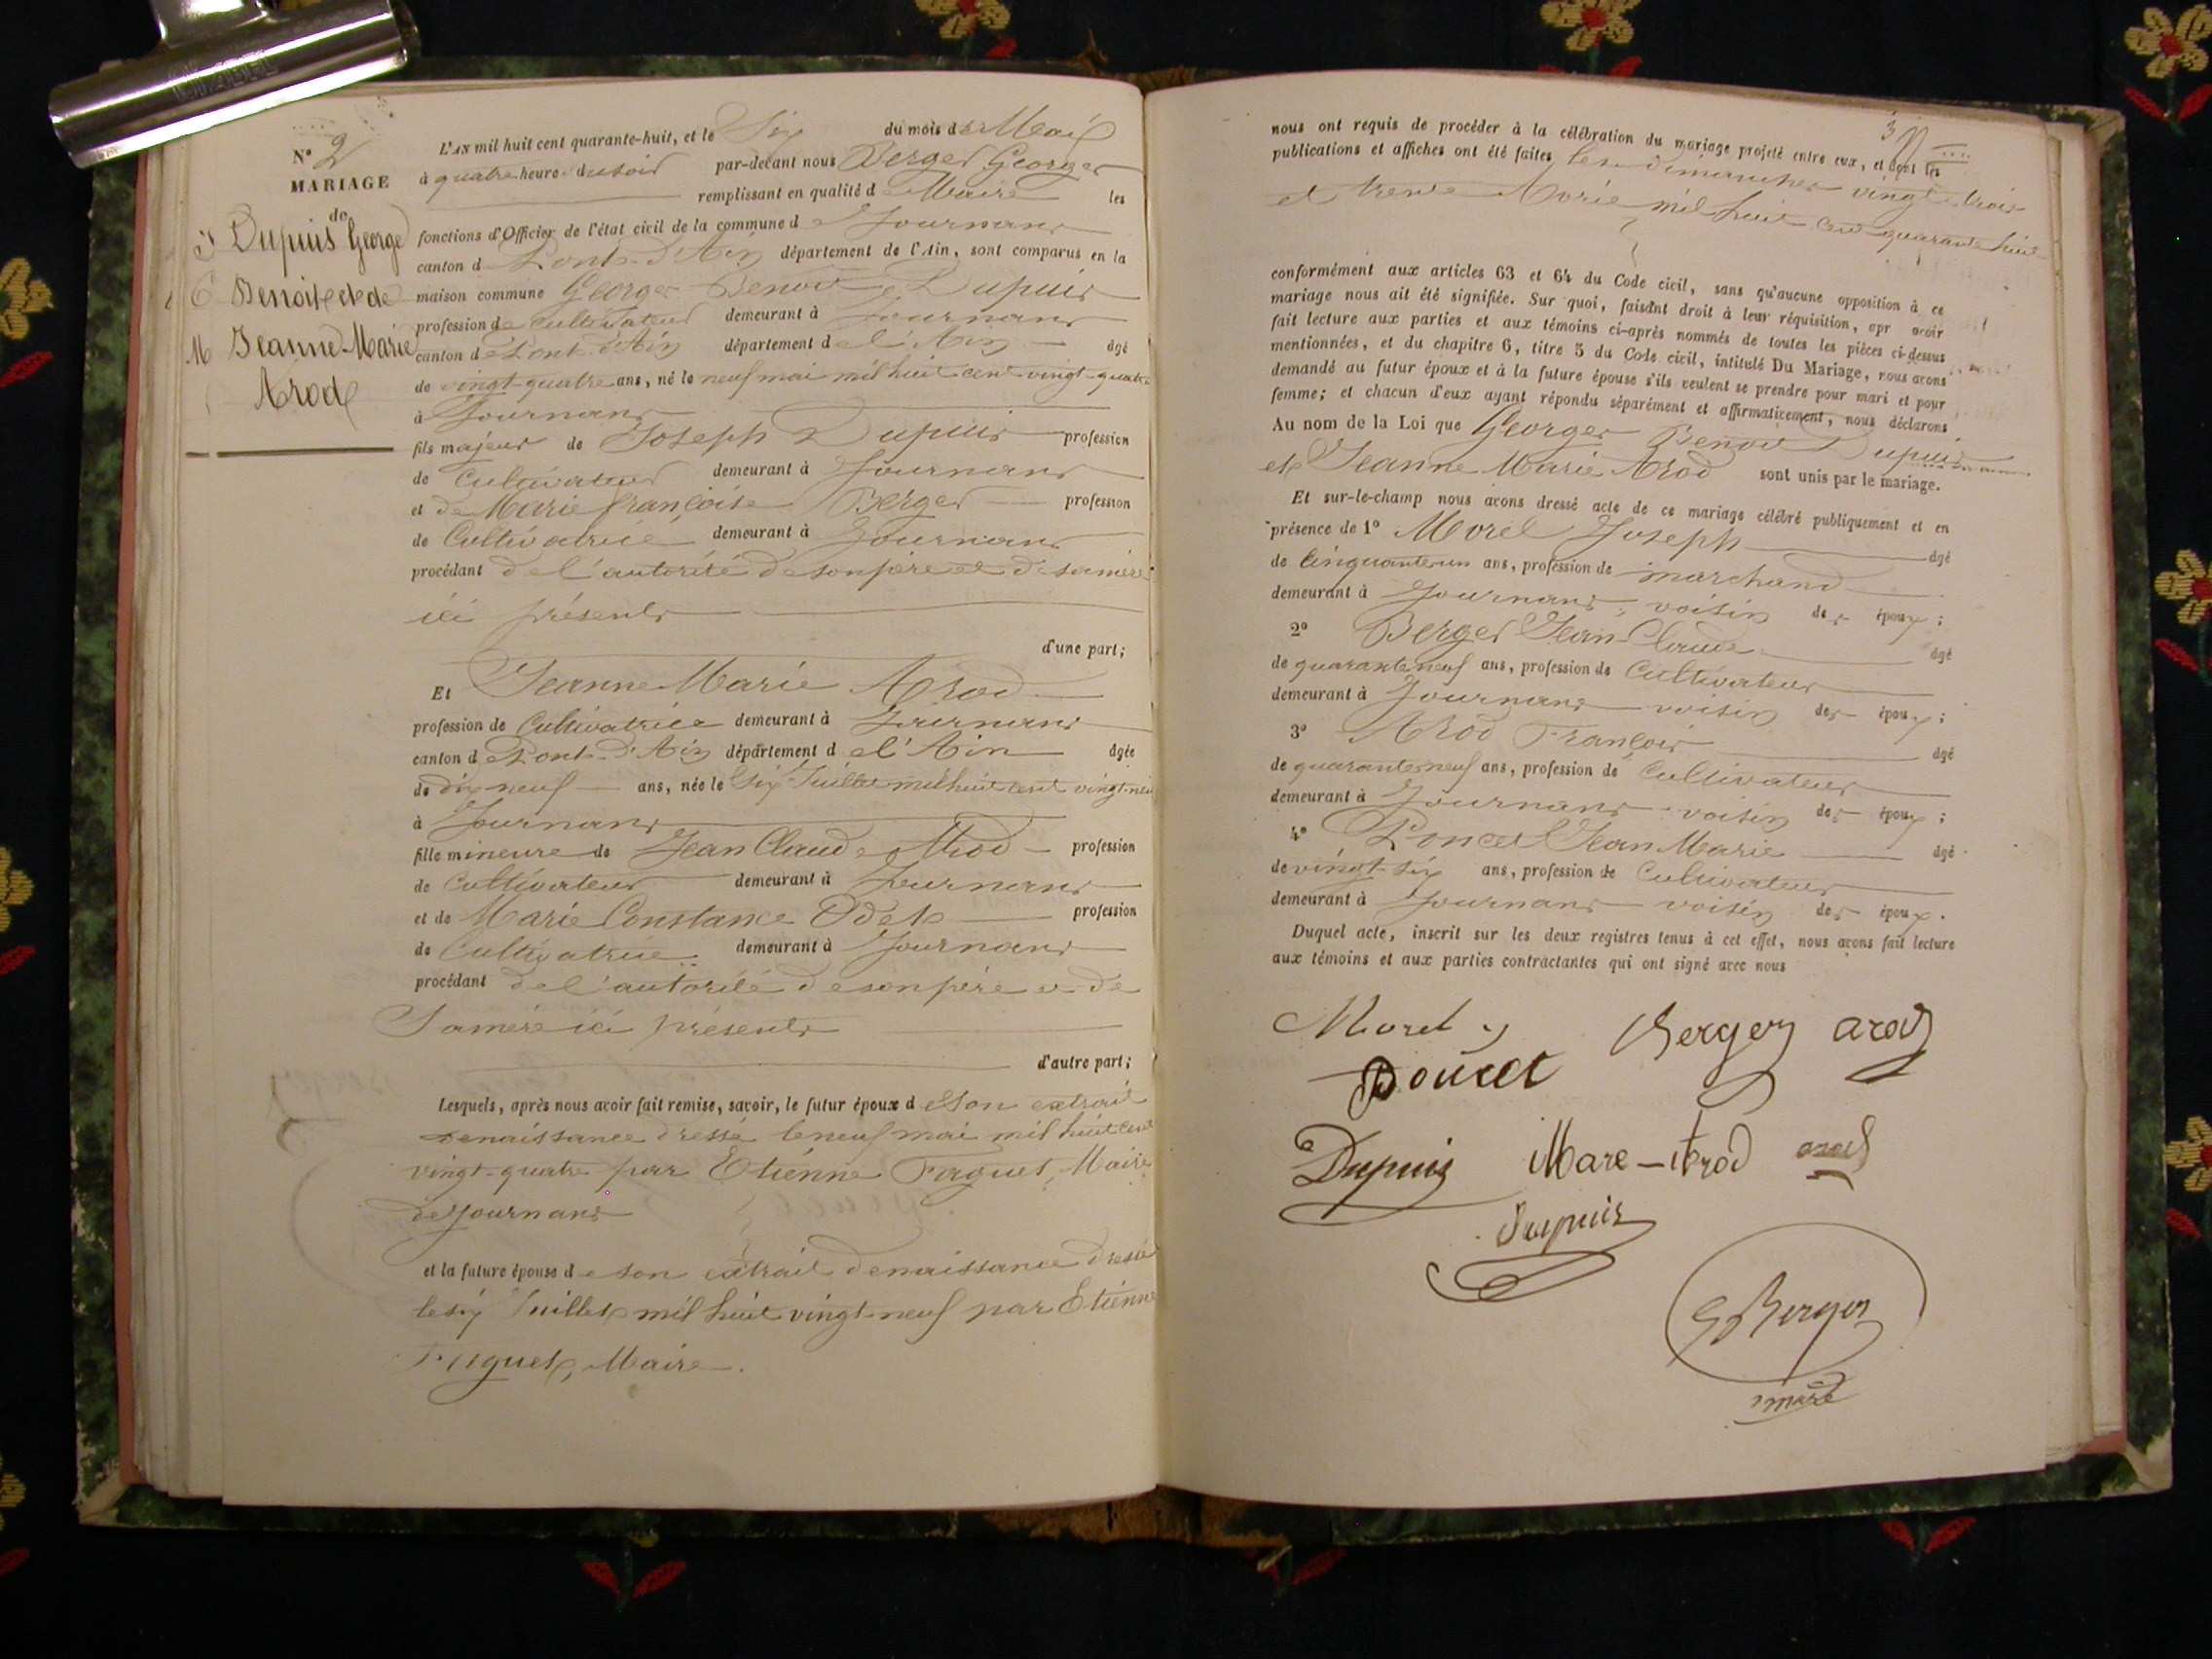 N° 2
MARIAGE
de
Dupuis George
Benoit et de
Jeanne-Marie
Arod
L'AN mil huit cent quarante-huit, et le Six du mois de Mai
à quatre heure du soir par-devant nous Berger George
remplissant en qualité de Maire les
fonctions d'Officier de l'état civil de la commune de Journans
canton de Pont-d'Ain département de l'Ain, sont comparus en la
maison commune George Benoit Dupuis
profession de cultivateur demeurant à Journans
canton de Pont-d'Ain département de l'Ain âgé
de vingt-quatre ans, né le neuf mai mil huit cent vingt-quatre
à Journans
fils majeur de Joseph Dupuis profession
de Cultivateur demeurant à Journans
et de Marie françoise Berger profession
de Cultivatrice demeurant à Journans
procédant de l'autorité de son père et de sa mère
ici présents
d'une part;
Et Jeanne Marie Arod
profession de Cultivatrice demeurant à Journans
canton de Pont-d'Ain département de l'Ain âgée
de dix neuf ans, née le Six Juillet mil huit cent vingt-neuf
à Journans
fille mineure de Jean Claude Arod profession
de Cultivateur demeurant à Journans
et de Marie Constance Odet profession
de Cultivatrice demeurant à Journans
procédant de l'autorité de son père et de
Sa mère ici présents
d'autre part;
Lesquels, après nous avoir fait remise, savoir, le futur époux de Son extrait
de naissance dressé le neuf mai mil huit cent
vingt-quatre par Etienne Faguet, Maire
de Journans
et la future épouse de son extrait de naissance dressé
le six Juillet mil huit vingt-neuf par Etienne
Faguet, Maire.
3
nous ont requis de procéder à la célébration du mariage projeté entre eux, et dont les
publications et affiches ont été faites les dimanches vingt-trois
et trente Avril mil huit cent quarante huit
conformément aux articles 63 et 64 du Code civil, sans qu'aucune opposition à ce
mariage nous ait été signifiée. Sur quoi, faisant droit à leur réquisition, apr avoir
fait lecture aux parties et aux témoins ci-après nommés de toutes les pièces ci-dessus
mentionnées, et du chapitre 6, titre 5 du Code civil, intitulé Du Mariage, nous avons
demandé au futur époux et à la future épouse s'ils veulent se prendre pour mari et pour
femme; et chacun d'eux ayant répondu séparément et affirmativement, nous déclarons
Au nom de la Loi que George Benoit Dupuis
et Jeanne Marie Arod sont unis par le mariage.
Et sur-le-champ nous avons dressé acte de ce mariage célébré publiquement et en
présence de 1° Morel Joseph âgé
de Cinquante-un ans, profession de marchand
demeurant à Journans, voisin des époux;
2° Berger Jean-Claude âgé
de quarante neuf ans, profession de Cultivateur
demeurant à Journans voisin des époux;
3° Arod François âgé
de quarante neuf ans, profession de Cultivateur
demeurant à Journans voisin des époux;
4° Poncet Jean Marie âgé
de vingt-six ans, profession de Cultivateur
demeurant à Journans voisin des époux.
Duquel acte, inscrit sur les deux registres tenus à cet effet, nous avons fait lecture
aux témoins et aux parties contractantes qui ont signé avec nous
Morel Berger arod
Poncet
Dupuis Mare-Arod arod
Dupuis
G Berger
maire